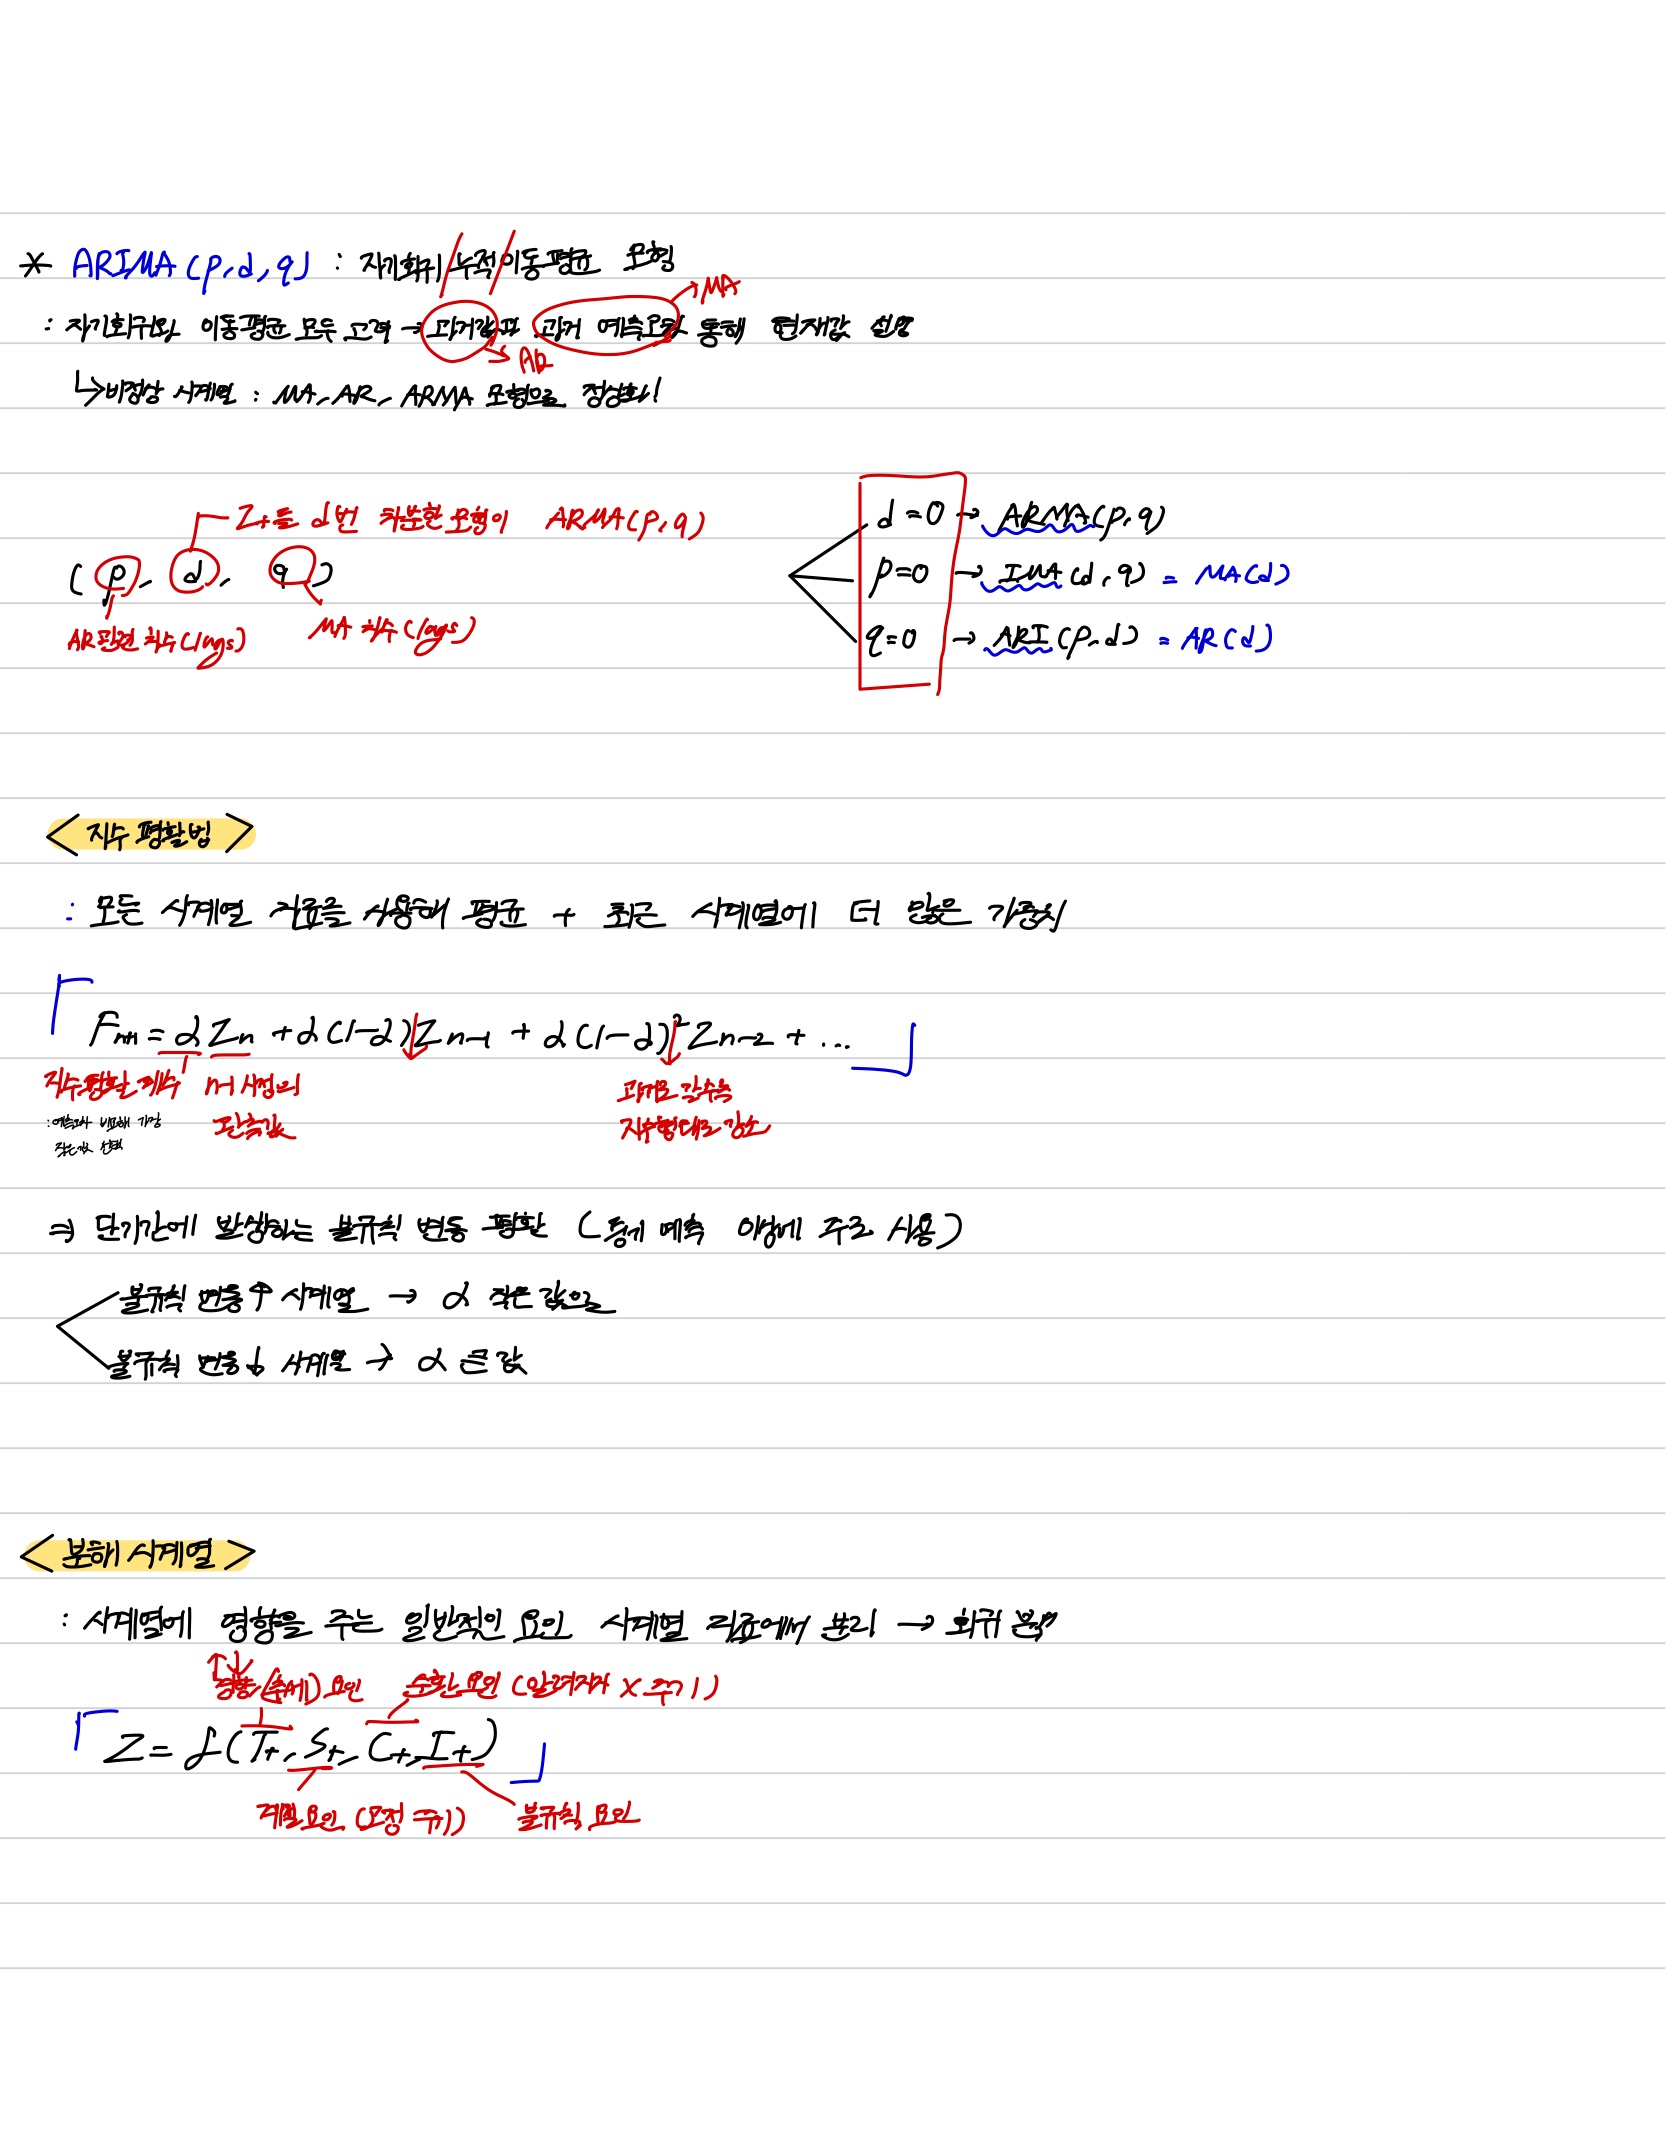 * ARIMA(p, d, q) : 자기회귀 / 누적 / 이동평균 모형
→ MA
: 자기회귀와 이동평균 모두 고려 → 과거값과 과거 예측오차 통해 현재값 설명
→ AR
↳ 비정상 시계열 : MA, AR, ARMA 모형으로 정상화!
Zt를 d번 차분한 모형이 ARMA(p, q)
(p, d, q)
AR 관련 차수(lags)
MA 차수(lags)
d=0 → ARMA(p, q)
p=0 → IMA(d, q) = MA(d)
q=0 → ARI(p, d) = AR(d)
<지수 평활법>
: 모든 시계열 자료를 사용해 평균 + 최근 시계열에 더 많은 가중치
「 Fn+1 = αZn + α(1-α)Zn-1 + α(1-α)²Zn-2 + ... 」
지수평활 계수
: 예측오차 비교해 가장
작은값 선택
n 시점의
관측값
과거로 갈수록
지수형태로 감소
⇒ 단기간에 발생하는 불규칙 변동 평활 (중기 예측 이상에 주로 사용)
불규칙 변동↑ 시계열 → α 작은 값으로
불규칙 변동↓ 시계열 → α 큰 값
<분해 시계열>
: 시계열에 영향을 주는 일반적인 요인 시계열 자료에서 분리 → 회귀 분석
↑↓
경향(추세)요인 순환요인(알려지지 X 주기)
「 Z = f(Tt, St, Ct, It) 」
계절요인(고정 주기) 불규칙 요인